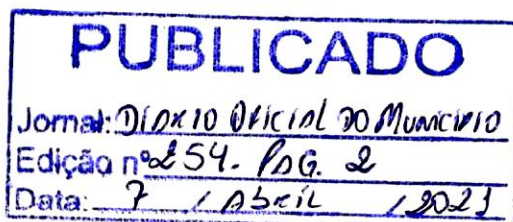 PUBLICADO
Jornal: DIÁRIO OFICIAL DO MUNICIPIO
Edição nº 254. PAG. 2
Data: 7 / Abril / 2021